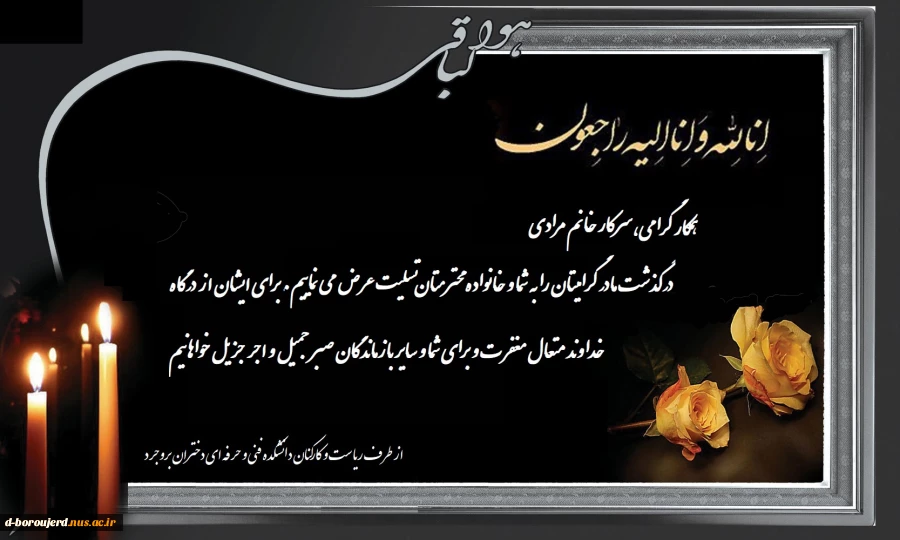 هوالباقی
انا لله و انا الیه راجعون
همکار گرامی، سرکار خانم مرادی
درگذشت مادر گرامیتان را به شما و خانواده محترمتان تسلیت عرض می نماییم. برای ایشان از درگاه
خداوند متعال مغفرت و برای شما و سایر بازماندگان صبر جمیل و اجر جزیل خواهانیم
از طرف ریاست و کارکنان دانشکده فنی و حرفه ای دختران بروجرد
d-boroujerd.nus.ac.ir